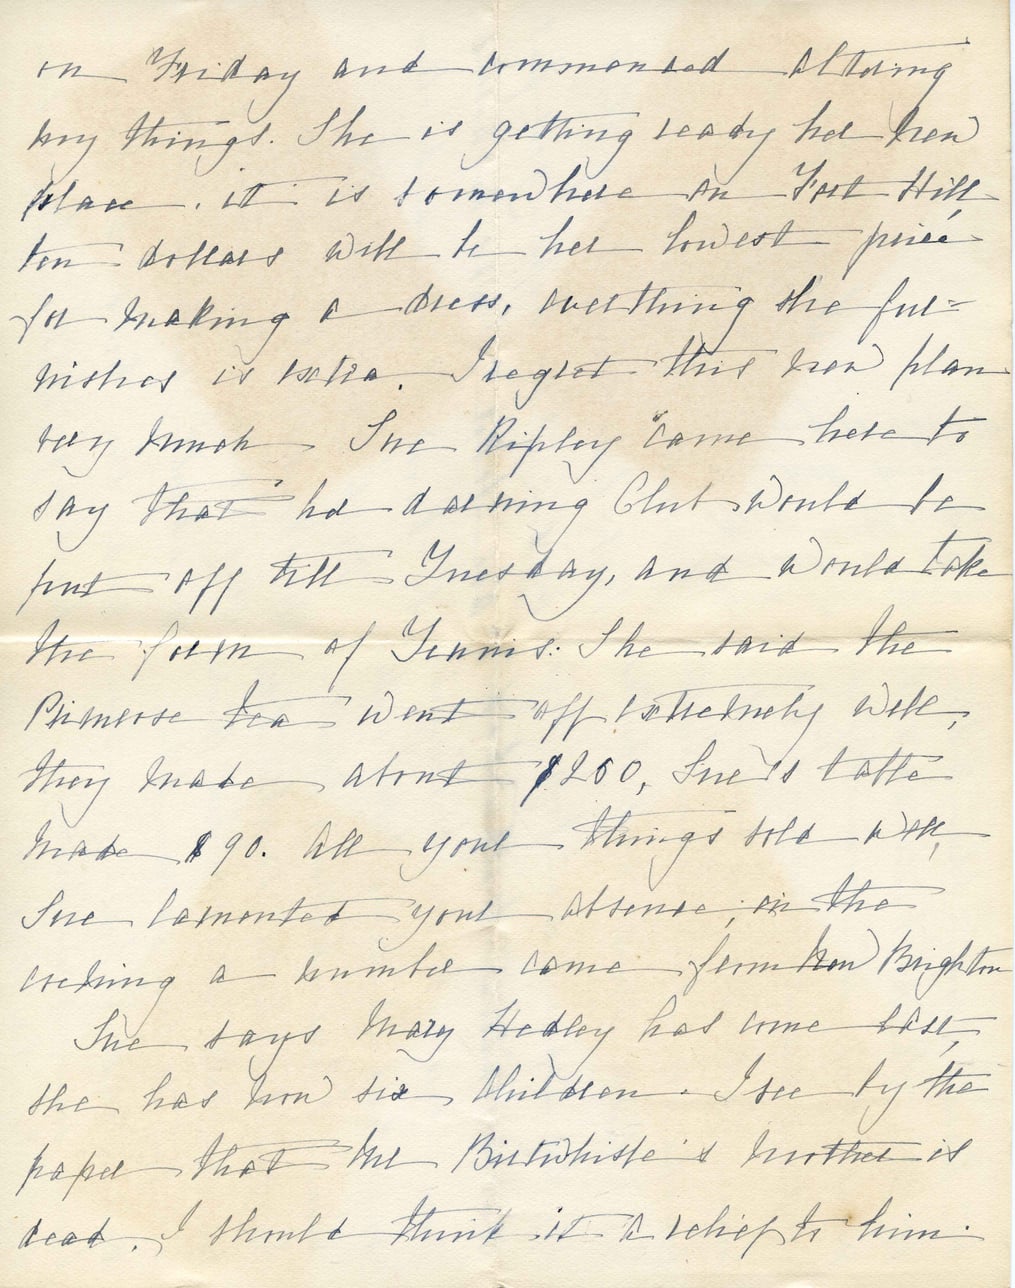 on Friday and commenced altering
my things. She is getting ready her new
place. it is somewhere on Fort Hill
ten dollars will be her lowest price
for making a dress, everthing she fur=
nishes is extra. I regret this new plan
very much Sue Ripley came here to
say that her darning Club would be
put off till Tuesday, and would take
the form of Tennis. She said the
Primrose tea went off extremely well,
they made about $200, Sue's table
made $90. All your things sold well,
Sue lamented your absence; in the
evening a number came from New Brighton
Sue says Mary Hedley has come East,
she has now six children. I see by the
paper that Mr Birtwhistle's mother is
dead. I should think it a relief to him.